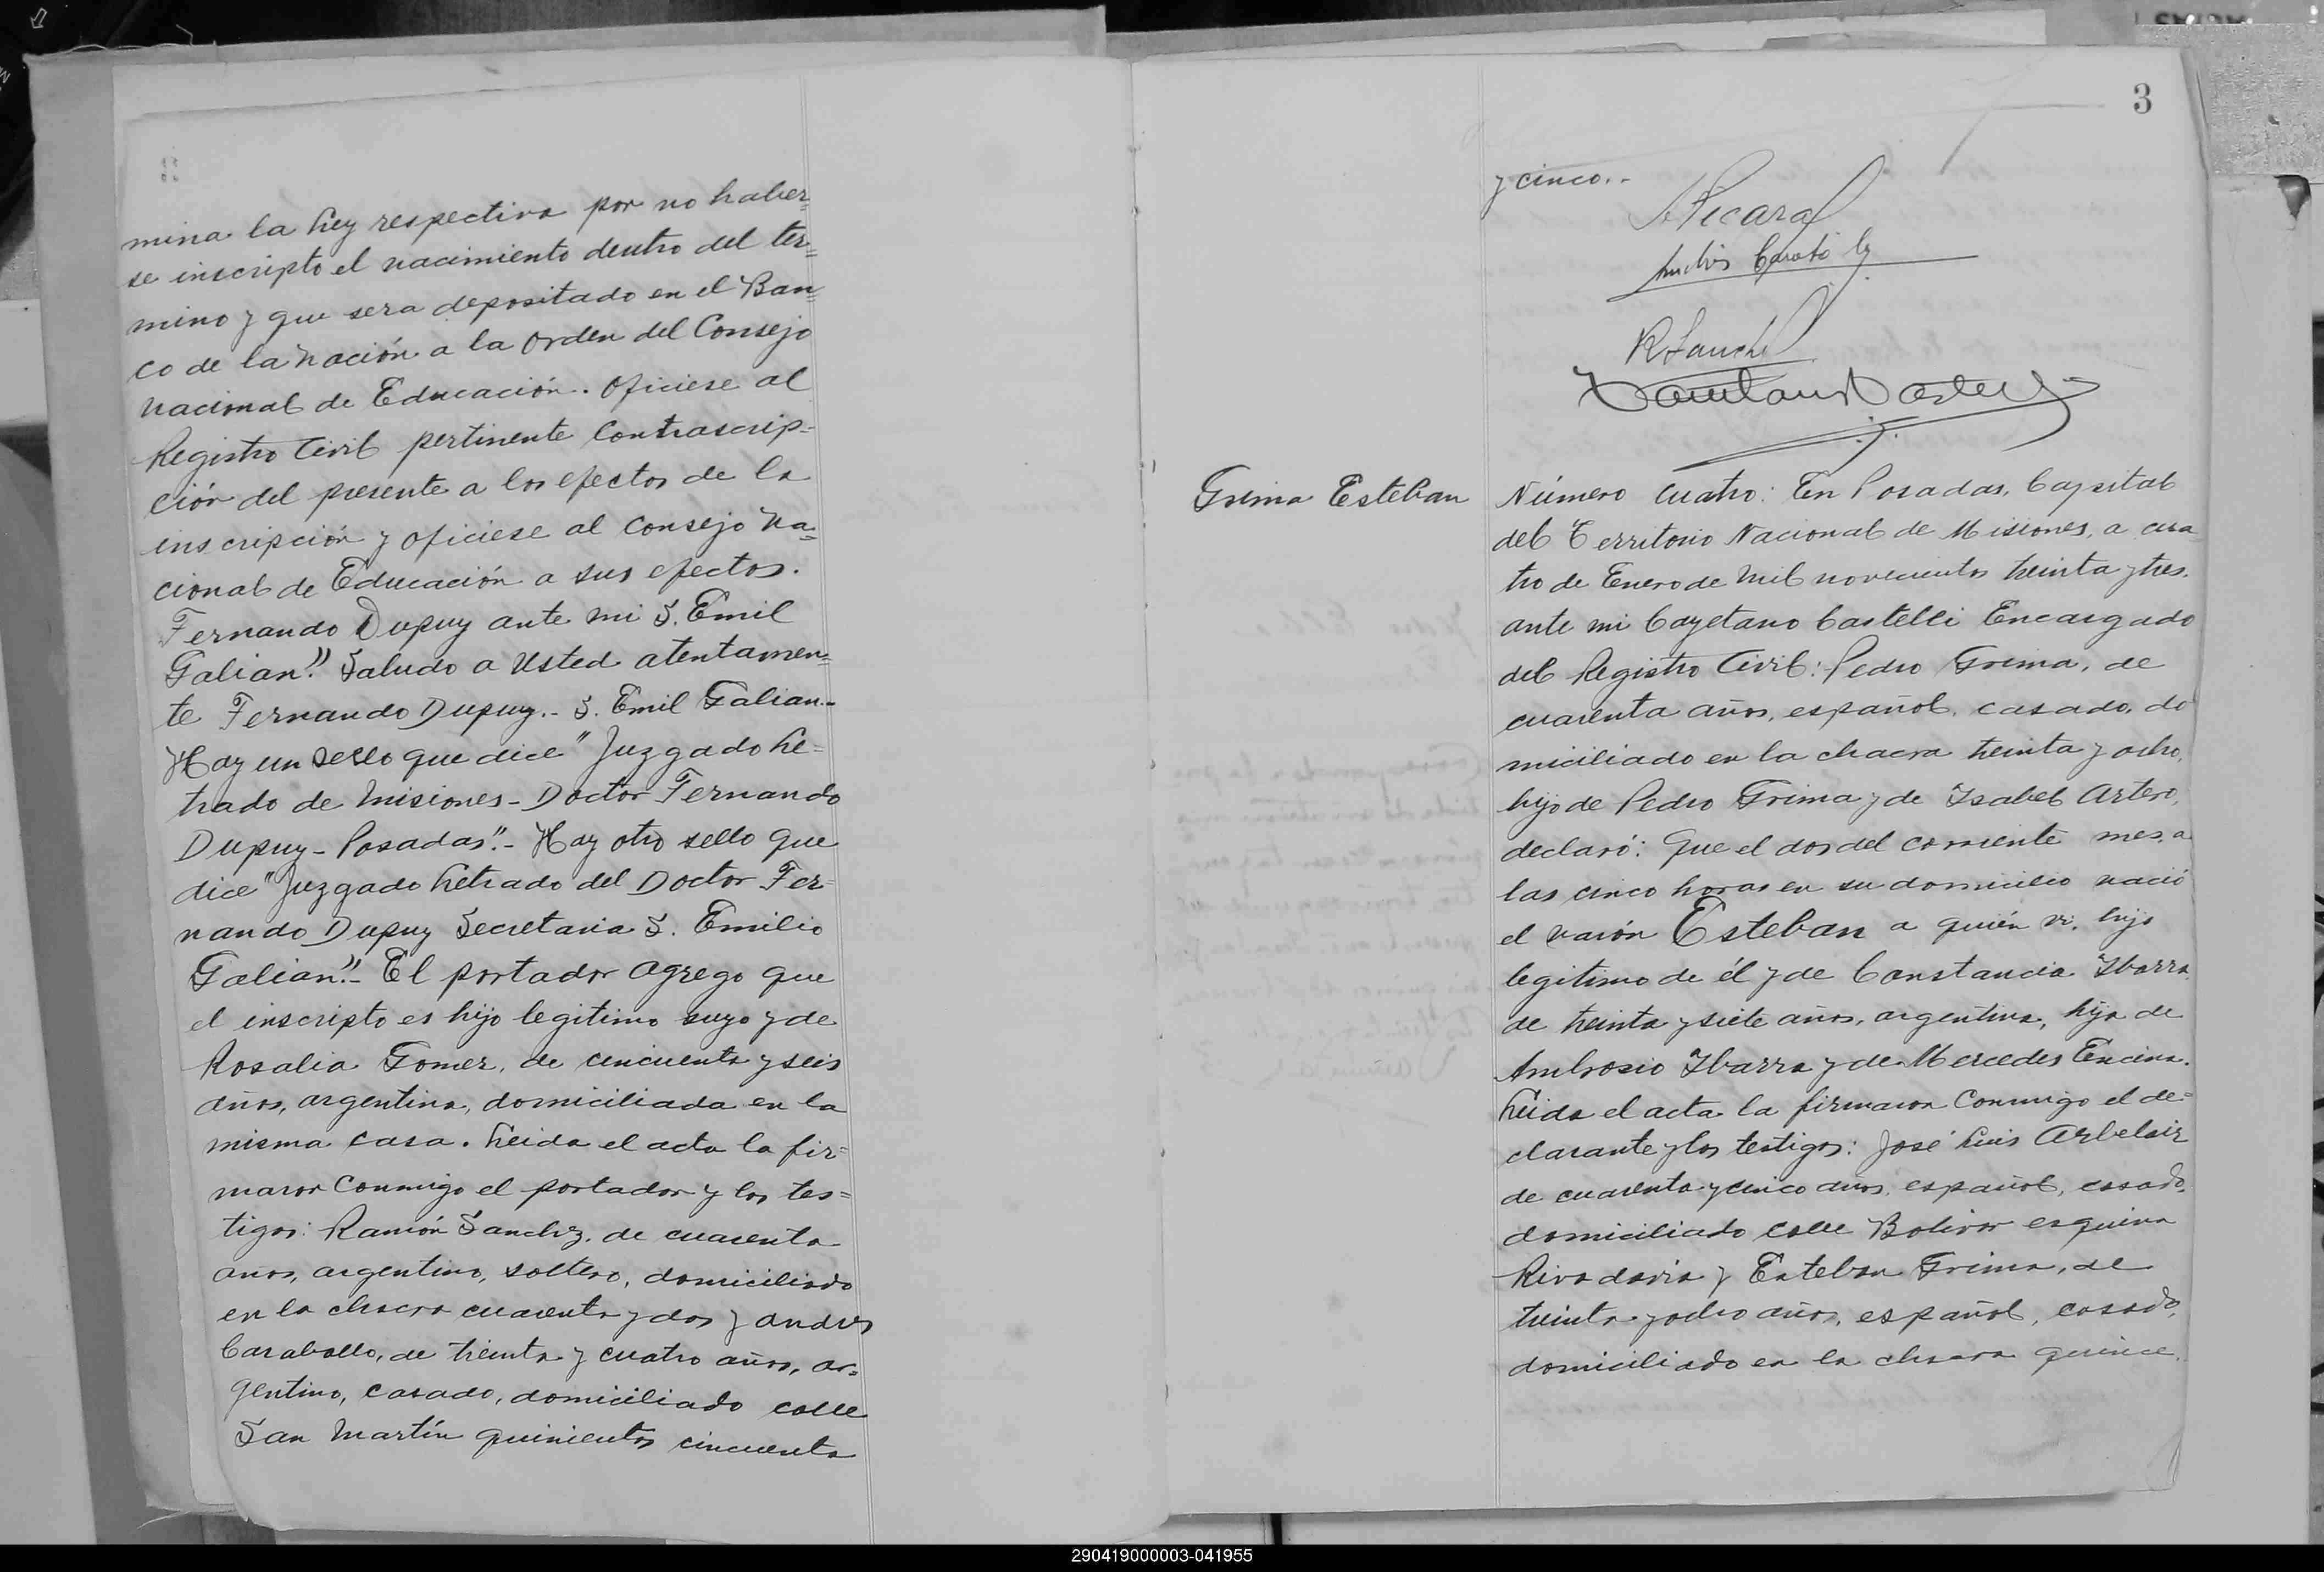 mina la Ley respectiva por no haber=
se inscripto el nacimiento dentro del ter=
mino y que sera depositado en el Ban=
co de la Nación a la orden del Consejo
Nacional de Educación. Oficiese al
Registro Civil pertinente con trascrip-
ción del presente a los efectos de la
inscripción y oficiese al Consejo Na=
cional de Educación a sus efectos.
Fernando Dupuy ante mi S. Emil
Galian." Saludo a Usted atentamen=
te Fernando Dupuy.- S. Emil Galian.-
Hay un sello que dice "Juzgado Le=
trado de Misiones - Doctor Fernando
Dupuy - Posadas".- Hay otro sello que
dice "Juzgado Letrado del Doctor Fer=
nando Dupuy Secretaria S. Emilio
Galian".- El portador agrego que
el inscripto es hijo legitimo suyo y de
Rosalia Gomez, de cincuenta y seis
años, argentina, domiciliada en la
misma casa. Leida el acta la fir=
maron conmigo el portador y los tes=
tigos: Ramón Sanchez, de cuarenta
años, argentino, soltero, domiciliado
en la chacra cuarenta y dos y Andres
Caraballo, de treinta y cuatro años, ar=
gentino, casado, domiciliado calle
San Martín quinientos cincuenta
3
y cinco..-
R Sanchez
Grima Esteban
Número cuatro: En Posadas, Capital
del Territorio Nacional de Misiones, a cua
tro de Enero de mil novecientos treinta y tres.
ante mi Cayetano Castelli Encargado
del Registro Civil: Pedro Grima, de
cuarenta años, español, casado, do
miciliado en la chacra treinta y ocho,
hijo de Pedro Grima y de Isabel Artero,
declaró: Que el dos del corriente mes, a
las cinco horas en su domicilio nació
el varón Esteban a quién vi, hijo
legitimo de él y de Constancia Ibarra
de treinta y siete años, argentina, hija de
Ambrosio Ibarra y de Mercedes Encina.
Leida el acta la firmaron conmigo el de=
clarante y los testigos: José Luis Arbelaiz
de cuarenta y cinco años, español, casado,
domiciliado calle Bolivar esquina
Rivadavia y Esteban Grima, de
treinta y ocho años, español, casado,
domiciliado en la chacra quince.
290419000003-041955